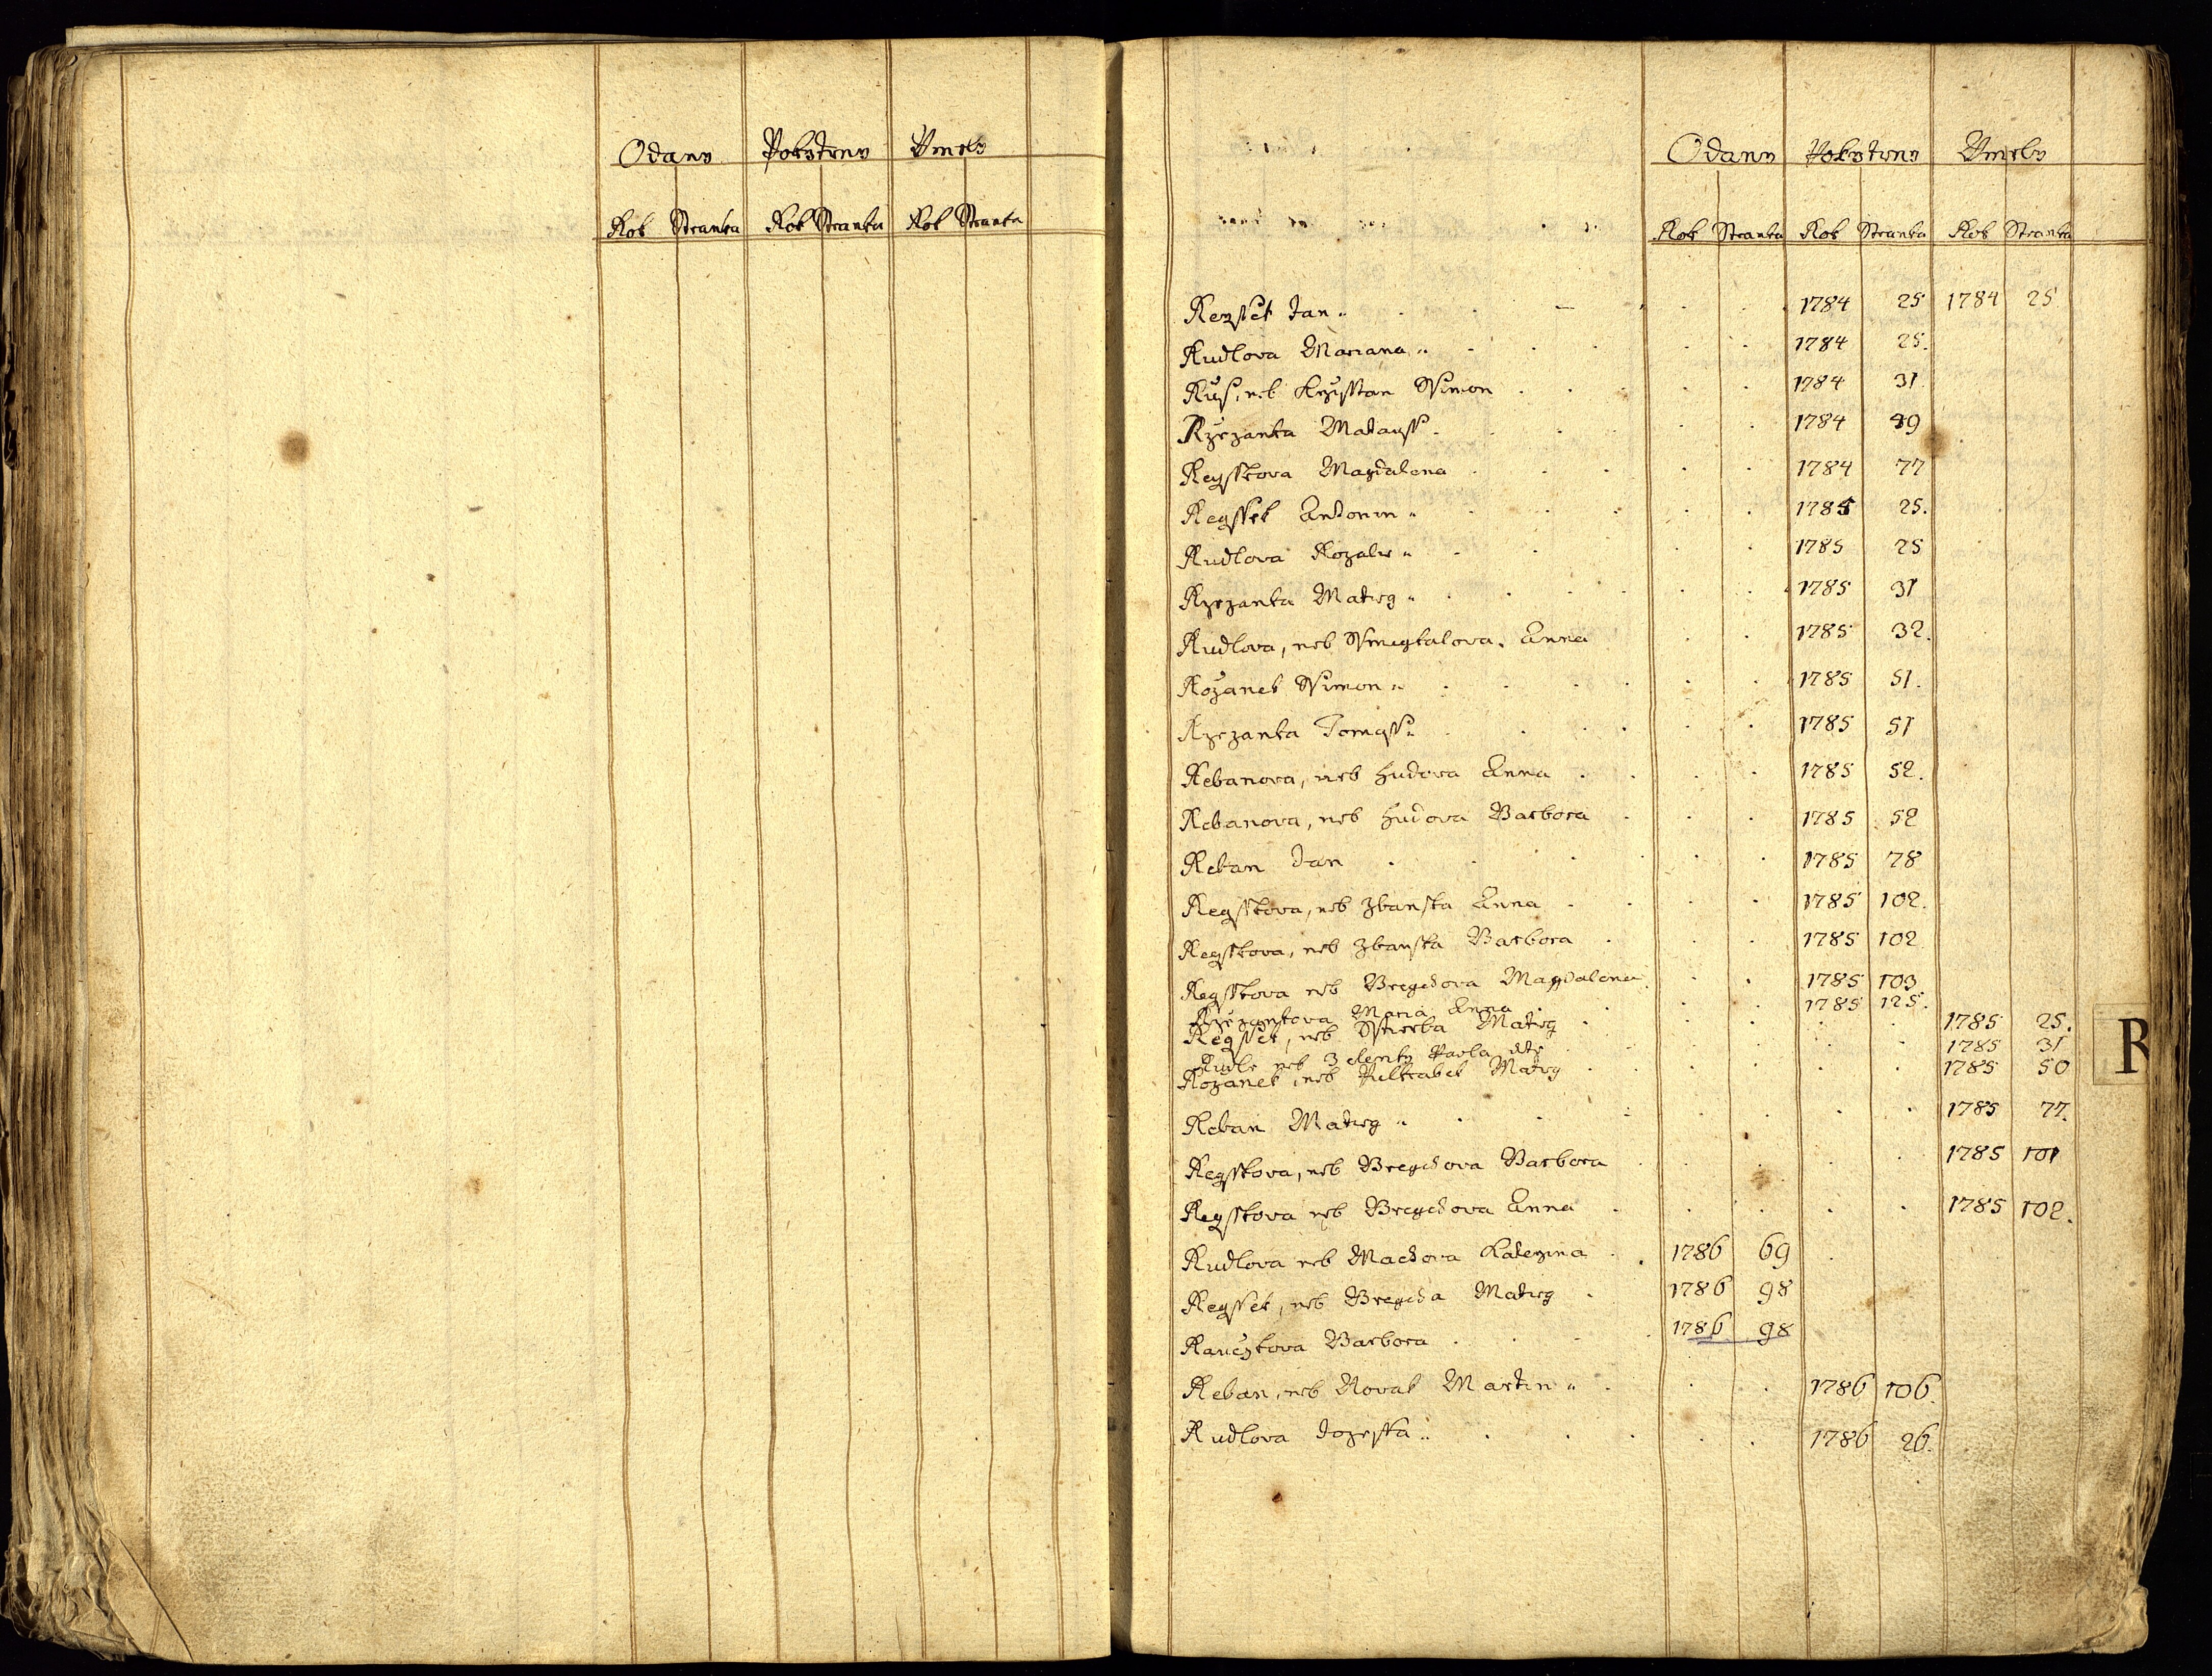 Odany Pokřtěny Umrly
Rok Stranka Rok Stranka Rok Stranka
Odany Pokřtěny Umrly
Rok Stranka Rok Stranka Rok Stranka
Regssek Jan 1784 25 1784 25
Rudlova Mariana 1784 25.
Rus, neb Krysstan Ssimon 1784 31
Rzezanka Matauss 1784 49
Regsskova Magdalena 1784 77
Regssek Antonin 1785 25.
Rudlova Rozalie 1785 25
Rzezanka Mateg 1785 31
Rudlova, neb Ssmegkalova Anna 1785 32.
Rozanek Ssimon 1785 51.
Rzezanka Tomass 1785 51
Rebanova, neb Hudova Anna 1785 52.
Rebanova, neb Hudova Barbora 1785 52
Reban Jan 1785 78
Regsskova, neb Zbanska Anna 1785 102.
Regsskova, neb Zbanska Barbora 1785 102
Regsskova neb Bregchova Magdalena 1785 103
Rzezankova Maria Anna 1785 125.
Regssek, neb Sstierba Mateg 1785 25.
Rudle neb Zelenky Pavla dite 1785 31
Rozanek, neb Pulkrabek Mateg 1785 50
Reban Mateg 1785 77.
Regsskova, neb Bregchova Barbora 1785 101
Regsskova neb Bregchova Anna 1785 102.
Rudlova neb Machova Katerzina 1786 69
Regssek, neb Bregcha Mateg 1786 98
Rauczkova Barbora 1786 98
Reban, neb Novak Martin 1786 106.
Rudlova Jozefka 1786 26.
R